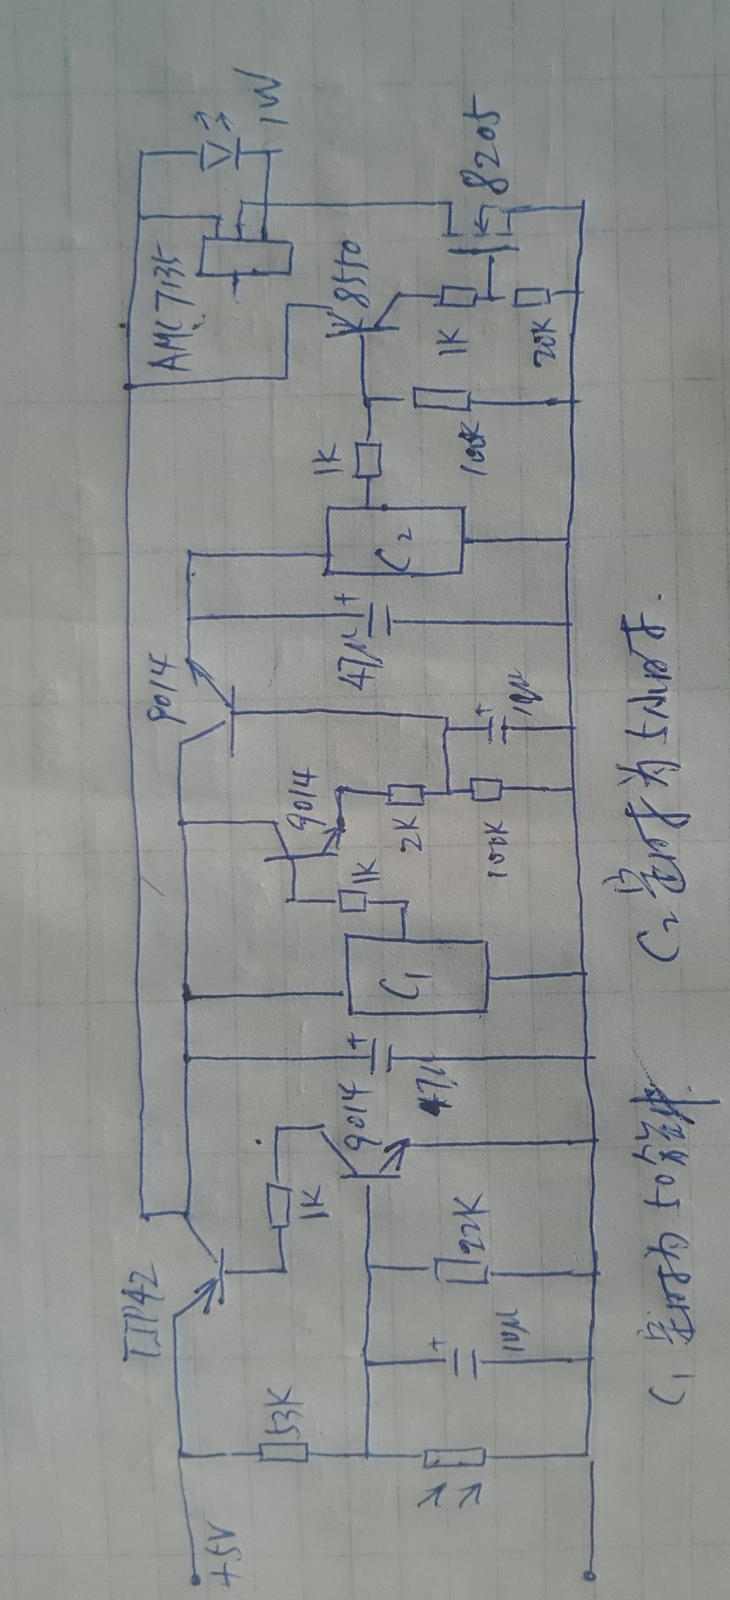 +5V
53K
10μ
22K
TIP42
1K
9014
47μ
C1
1K
9014
2K
100K
10μ
9014
47μ
C2
1K
100K
8550
1K
20K
AMC7135
1W
8205
C1 定时为50分钟.
C2 定时为5小时.